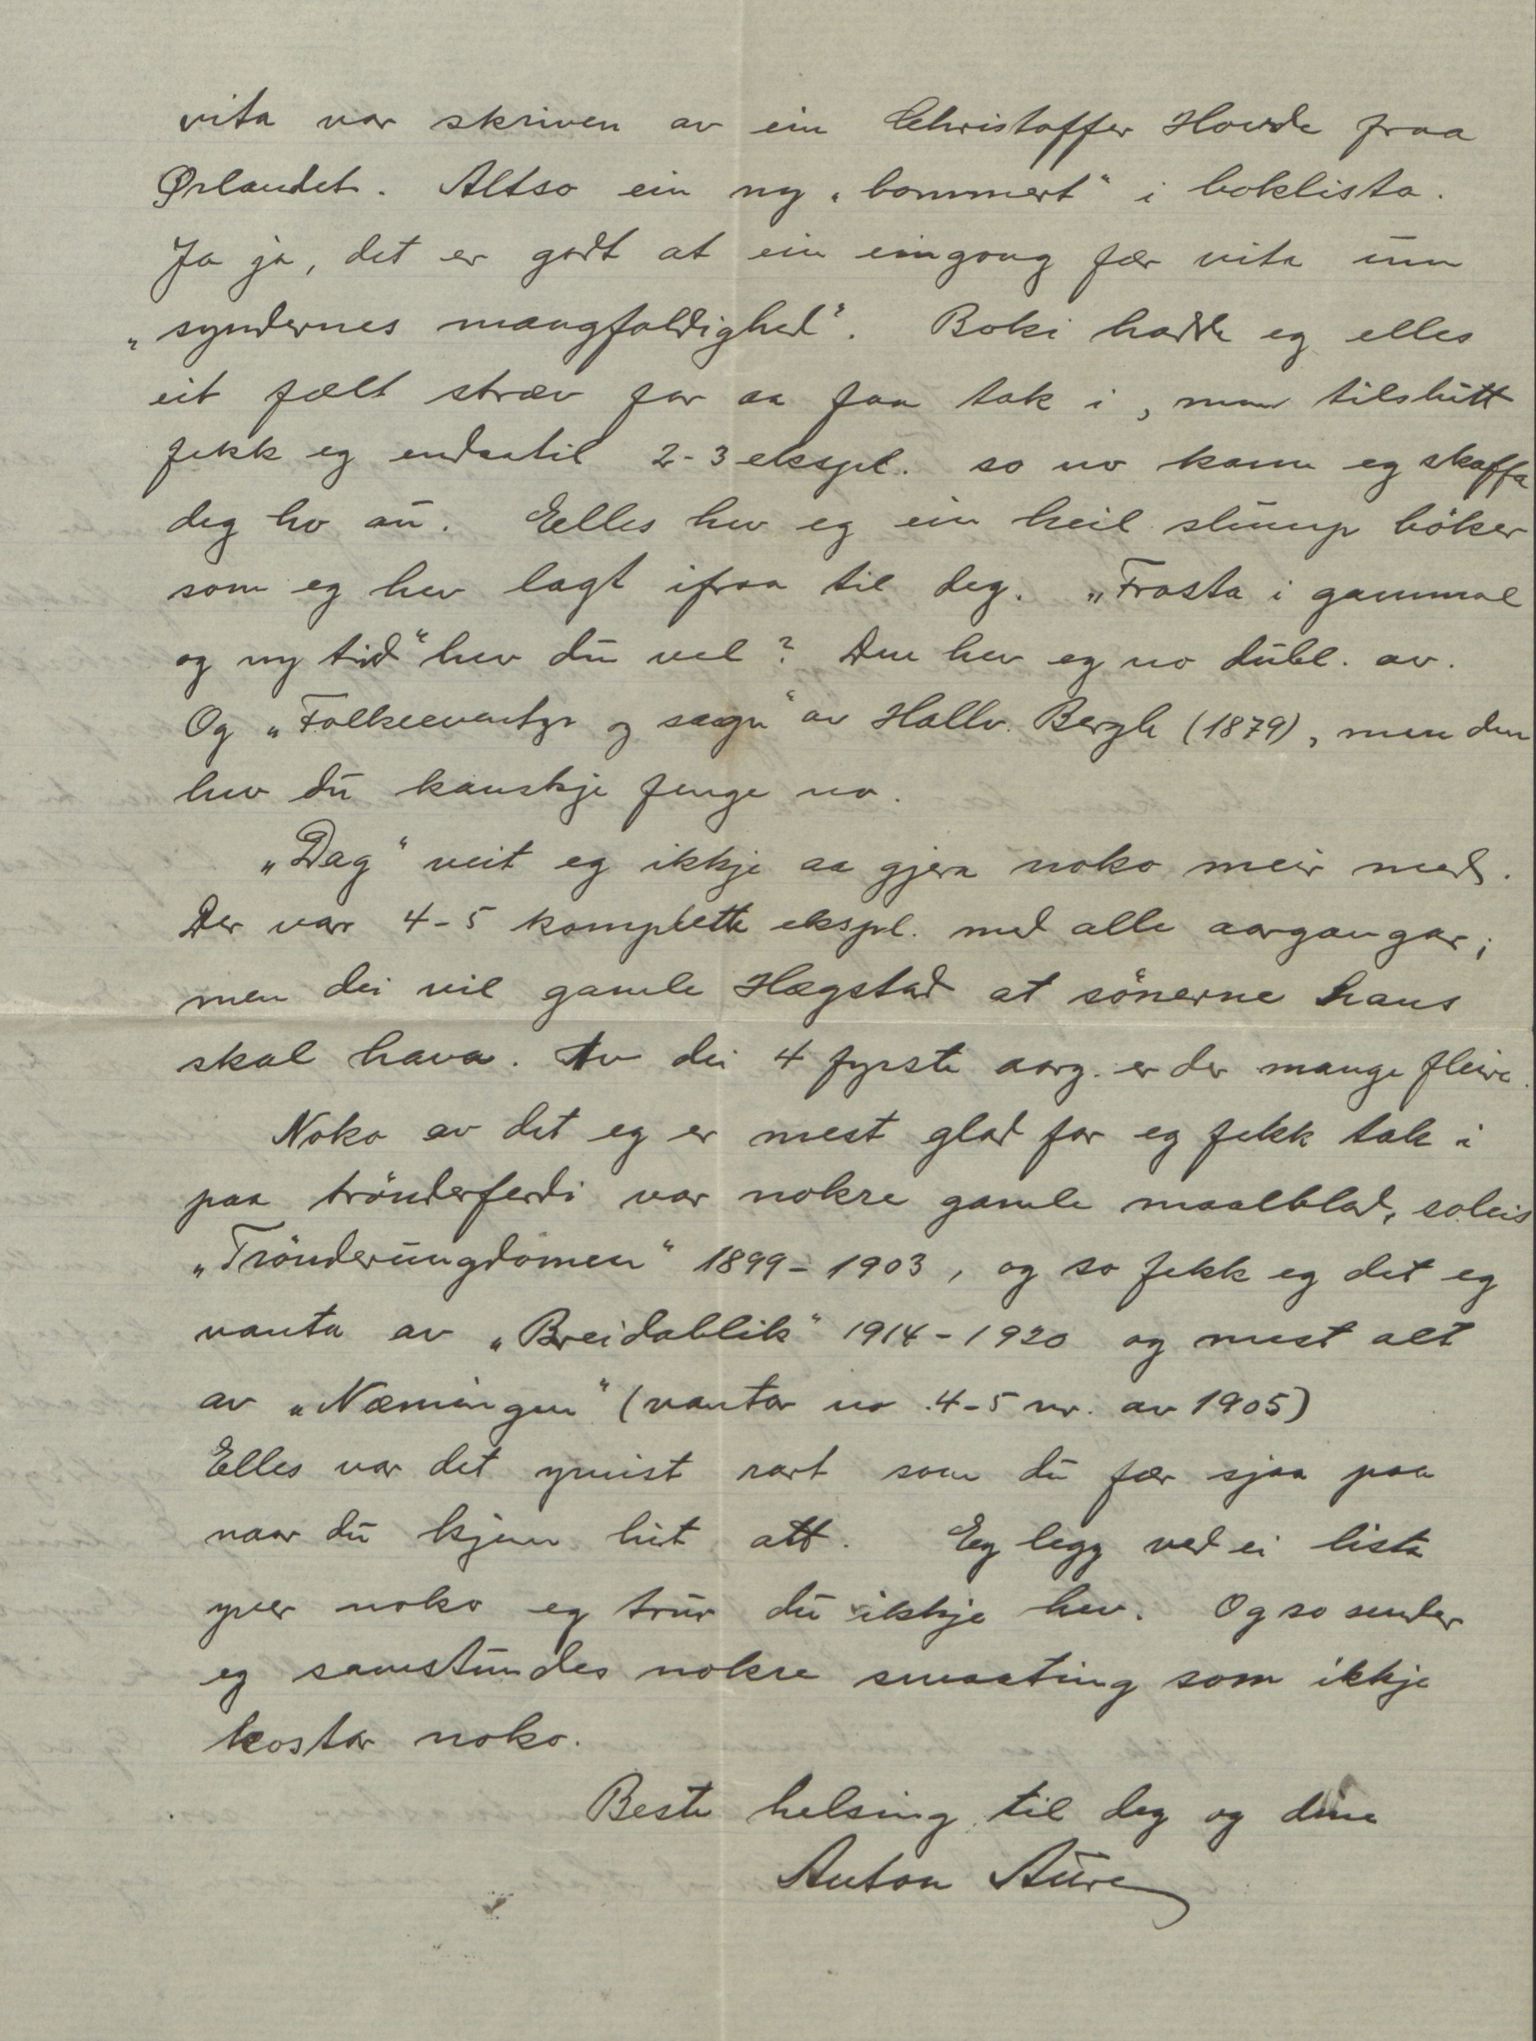 vita var skriven av ein Christoffer Hovde fraa
Ørlandet. Altso ein ny „bommert“ i boklista.
Ja ja, det er godt at ein eingong fær vita um
„syndernes mangfoldighed“. Boki hadde eg elles
eit fælt stræv for aa faa tak i, men tilslutt
fekk eg endaatil 2-3 ekspl. so no kann eg skaffa
deg ho au. Elles hev eg ein heil slump böker
som eg hev lagt ifraa til deg. „Frosta i gammal
og ny tid“ hev du vel? Den hev eg no dubl. av.
Og „Folkeeventyr og sagn“ av Hallv. Bergh (1879), men den
hev du kanskje fenge no.
„Dag“ veit eg ikkje aa gjera noko meir med.
Der var 4-5 komplette ekspl. med alle aargangar;
men dei vil gamle Hægstad at sönerne hans
skal hava. Av dei 4 fyrste aarg. er der mange fleire.
Noko av det eg er mest glad for eg fekk tak i
paa trönderferdi var nokre gamle maalblad, soleis
„Trönderungdomen“ 1899-1903, og so fekk eg det eg
vanta av „Breidablik“ 1914-1920 og mest alt
av „Næmingen“ (vantar no 4-5 nr. av 1905)
Elles var det ymist rart som du fær sjaa paa
naar du kjem hit att. Eg legg ved ei lista
yver noko eg trur du ikkje hev. Og so sender
eg samstundes nokre smaating som ikkje
kostar noko.
Beste helsing til deg og dine
Anton Aure